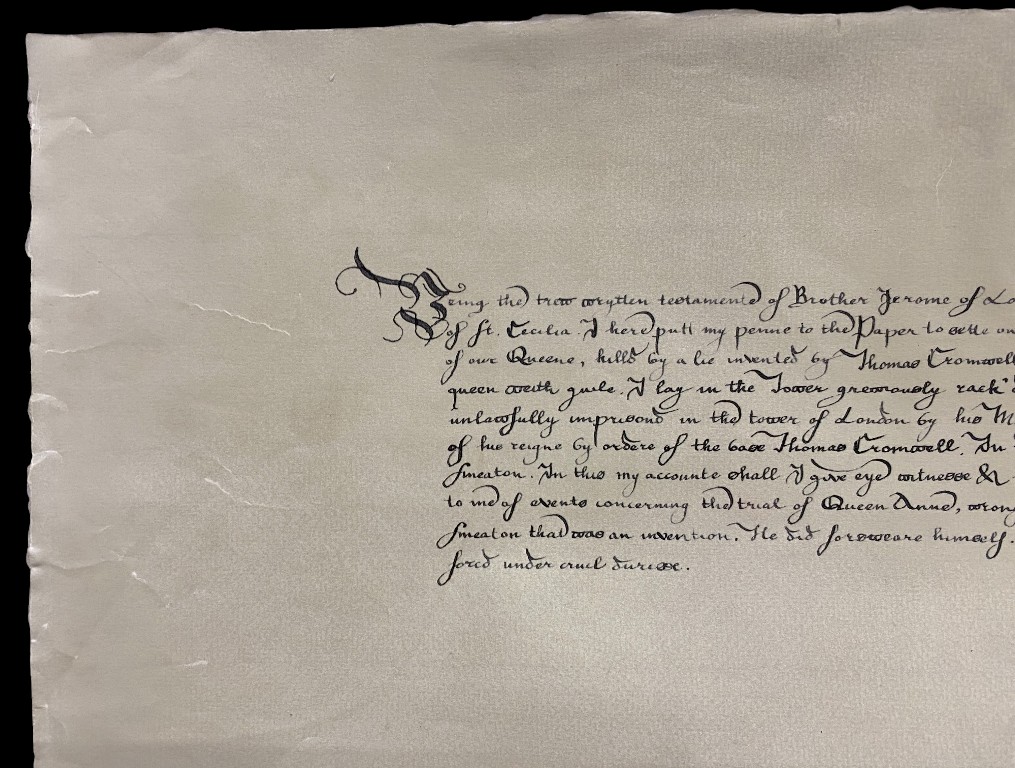 Being the trew wrytten testamente of Brother Jerome of Lo
of St. Cecilia. I here putt my penne to the Paper to sette on
of owr Queene, killd by a lie invented by Thomas Cromwell
queen with guile. I lay in the Tower grevously rack'd
unlawfully imprisond in the tower of London by his M
of his reigne by ordere of the base Thomas Cromwell. In
Smeaton. In this my accounte shall I give eye witnesse &
to me of events concerning the trial of Queen Anne, wrong
Smeaton that was an invention. He did forsweare himself.
forcd under cruil duresse.